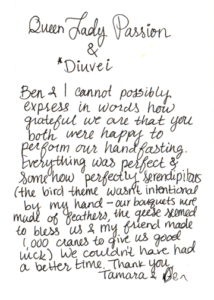 Queen Lady Passion
&
*Diuvei
Ben & I cannot possibly
express in words how
grateful we are that you
both were happy to
perform our handfasting.
Everything was perfect &
somehow perfectly serendipitous
(the bird theme wasn't intentional
by my hand - our bouquets were
made of feathers, the geese seemed
to bless us & my friend made
1,000 cranes to give us good
luck) We couldn't have had
a better time. Thank you,
Tamara & Ben